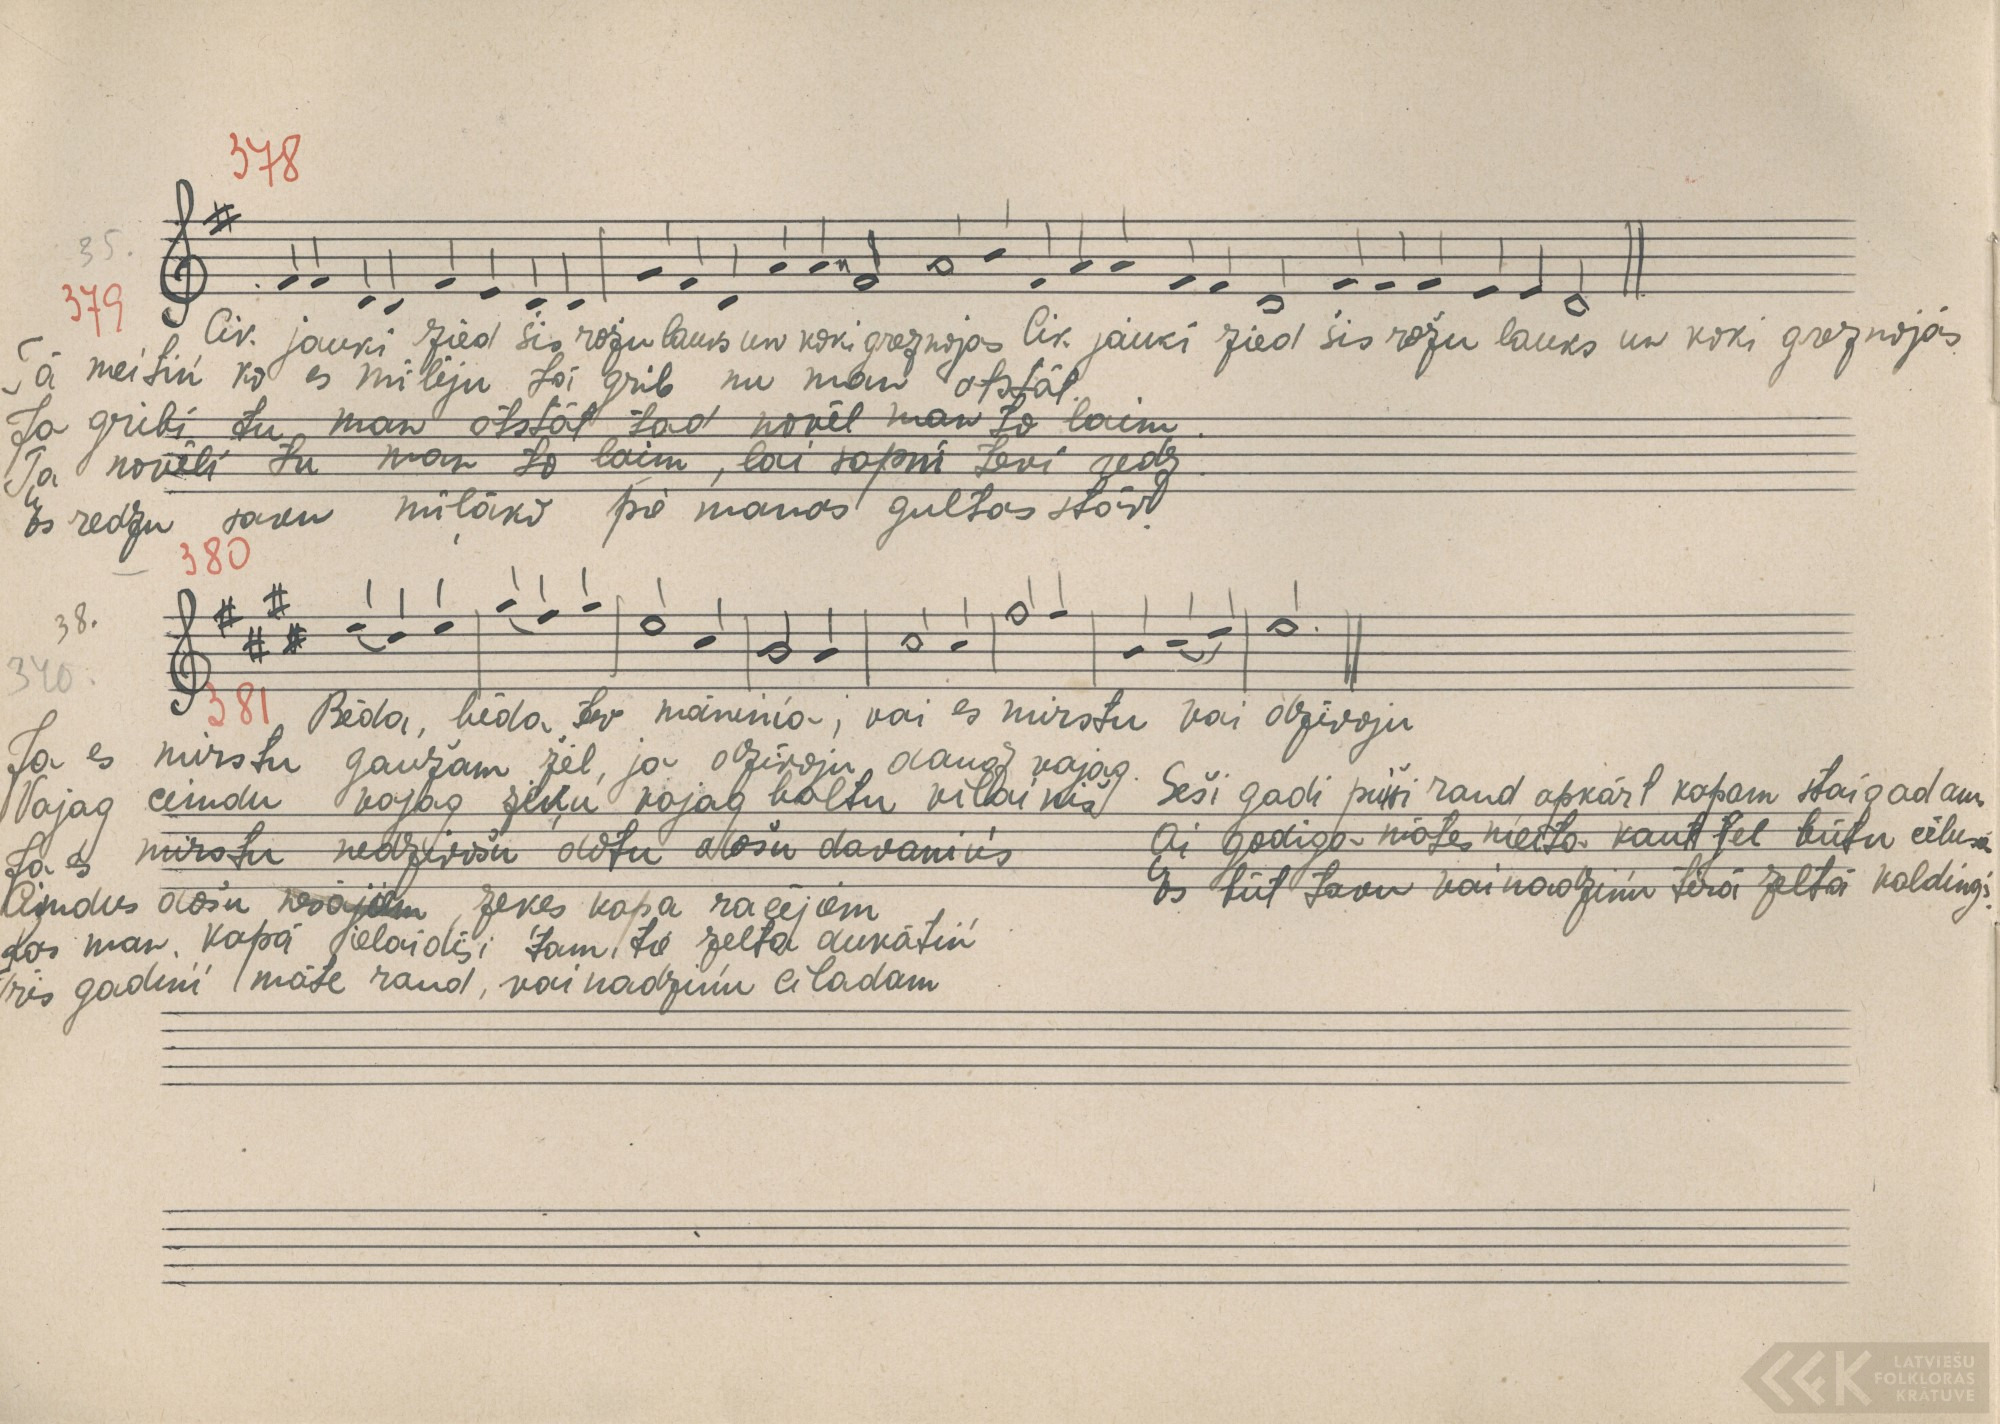 378
35.
379
Cik jauki zied šis rožu lauks un koki greznojās Cik jauki zied šis rožu lauks un koki greznojās
Tā meitiņ ko es mīlēju tai grib nu man atstāt.
Ja gribi tu man atstāt tad novēl man to laim.
Ja novēli tu man to laim, lai sapnī tevi redz.
Es redzu savu mīļāko pie manas gultas stāv.
380
38.
340.
381
Bēda, bēda tev māmiņa, vai es mirstu vai dzīvoju
Ja es mirstu gaužām žēl, ja dzīvoju daudz vajag.
Vajag cimdu vajag zeķu vajag baltu villainīš
Ja es mirstu nedzīvošu došu davaniņs
Cimdus došu zeķes kapa racējiem
kas man kapā ielaidīs, tam to zelta dukātiņ
Trīs gadiņi māte raud, vainadziņu cilādam
Seši gadi puiši raud apkārt kapam staigadam
Ai godīga mātes meita kaut tel būtu cēlusā
Es būt tavu vainadziņu tīrā zeltā kaldinājs.
LATVIEŠU
FOLKLORAS
KRĀTUVE